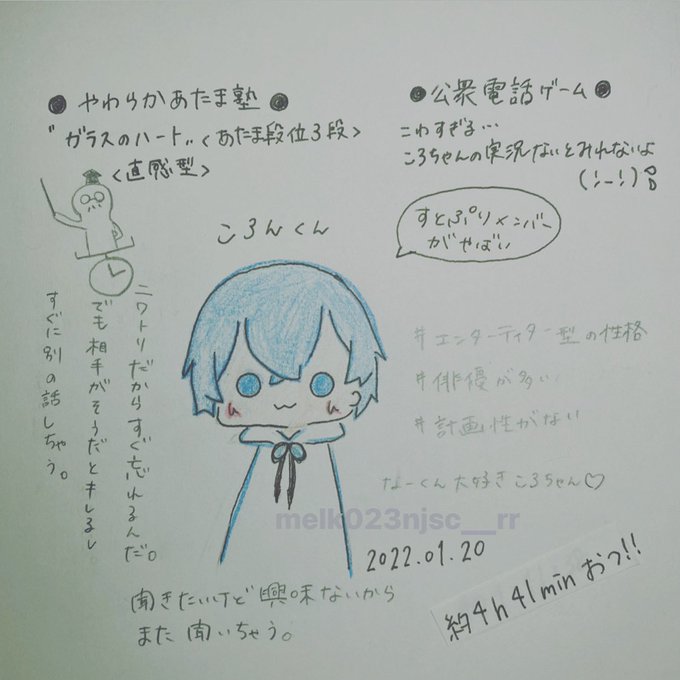 ● やわらかあたま塾 ●
"ガラスのハート" <あたま段位3段>
<直感型>
● 公衆電話ゲーム ●
こわすぎる…
ころちゃんの実況ないとみれないよ
(!ー!)
すとぷりメンバー
がやばい
ころんくん
ニワトリだからすぐ忘れるんだ。
でも相手がそうだとキレるし、
すぐに別の話しちゃう。
#エンターティナー型の性格
#俳優が多い
#計画性がない
なーくん大好きころちゃん♡
melk023njsc__rr
2022.01.20
約4h41minおつ!!
聞きたいけど興味ないから
また聞いちゃう。